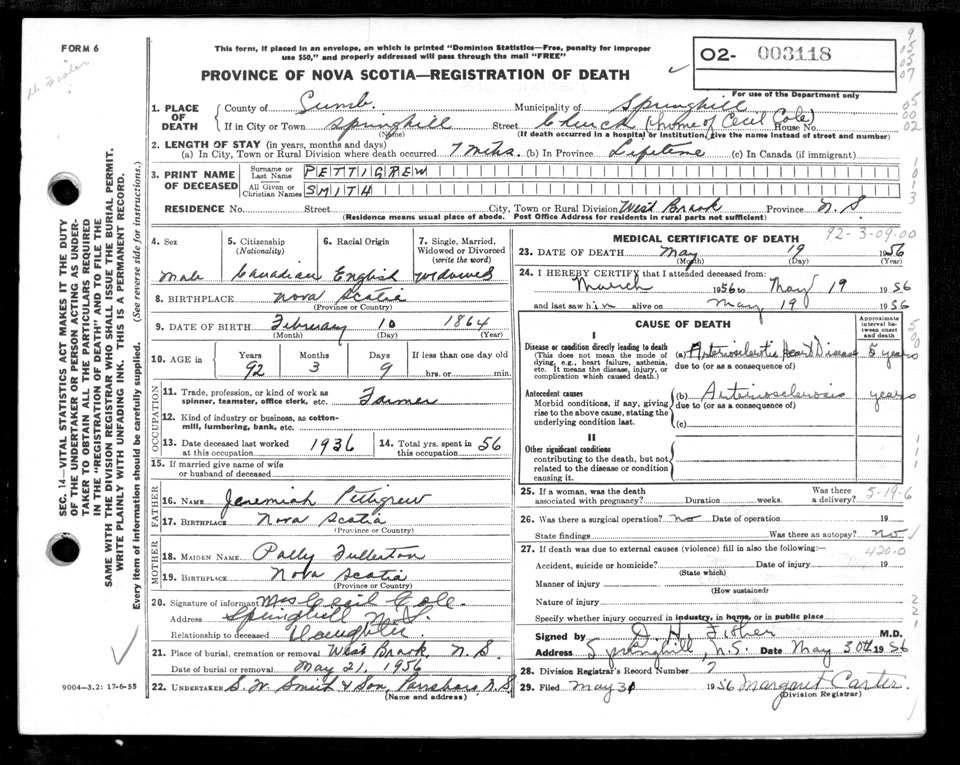 FORM 6
This form, if placed in an envelope, on which is printed "Dominion Statistics—Free, penalty for improper
use $50," and properly addressed will pass through the mail "FREE"
PROVINCE OF NOVA SCOTIA—REGISTRATION OF DEATH
02- 003118
For use of the Department only
1. PLACE OF DEATH
County of Cumb. Municipality of Springhill
If in City or Town Springhill Street Church (home of Cecil Cole) House No.
(Name) (If death occurred in a hospital or institution, give the name instead of street and number)
2. LENGTH OF STAY (in years, months and days)
(a) In City, Town or Rural Division where death occurred 7 mths. (b) In Province Lifetime (c) In Canada (if immigrant)
3. PRINT NAME OF DECEASED
Surname or Last Name PETTIGREW
All Given or Christian Names SMITH
RESIDENCE No. Street City, Town or Rural Division West Brook Province N.S
(Residence means usual place of abode. Post Office Address for residents in rural parts not sufficient)
4. Sex Male
5. Citizenship (Nationality) Canadian
6. Racial Origin English
7. Single, Married, Widowed or Divorced (write the word) Widowed
8. BIRTHPLACE Nova Scotia
(Province or Country)
9. DATE OF BIRTH February 10 1864
(Month) (Day) (Year)
10. AGE in Years 92 Months 3 Days 9 If less than one day old hrs. or min.
OCCUPATION
11. Trade, profession, or kind of work as spinner, teamster, office clerk, etc. Farmer
12. Kind of industry or business, as cotton-mill, lumbering, bank, etc.
13. Date deceased last worked at this occupation 1936
14. Total yrs. spent in this occupation 56
15. If married give name of wife or husband of deceased
FATHER
16. NAME Jeremiah Pettigrew
17. BIRTHPLACE Nova Scotia
(Province or Country)
MOTHER
18. MAIDEN NAME Polly Fullerton
19. BIRTHPLACE Nova Scotia
(Province or Country)
20. Signature of informant Mrs Cecil Cole.
Address Springhill N.S.
Relationship to deceased Daughter.
21. Place of burial, cremation or removal West Brook N.S.
Date of burial or removal May 21, 1956
22. UNDERTAKER S. W. Smith & Son, Parrsboro N.S
(Name and address)
9004-3.2: 17-6-55
MEDICAL CERTIFICATE OF DEATH
92-3-09-00
23. DATE OF DEATH May 19 1956
(Month) (Day) (Year)
24. I HEREBY CERTIFY that I attended deceased from:
March 1956 to May 19 1956
and last saw him alive on May 19 1956
CAUSE OF DEATH
Approximate interval between onset and death
I
Disease or condition directly leading to death
(This does not mean the mode of dying, e.g., heart failure, asthenia, etc. It means the disease, injury, or complication which caused death.)
(a) Arteriosclerotic Heart Disease 5 years
due to (or as a consequence of)
Antecedent causes
Morbid conditions, if any, giving rise to the above cause, stating the underlying condition last.
(b) Arteriosclerosis years
due to (or as a consequence of)
(c)
II
Other significant conditions
contributing to the death, but not related to the disease or condition causing it.
25. If a woman, was the death associated with pregnancy? Duration weeks. Was there a delivery? 5-19-6
26. Was there a surgical operation? no Date of operation 19
State findings Was there an autopsy? no
27. If death was due to external causes (violence) fill in also the following:— 420.0
Accident, suicide or homicide? Date of injury 19
(State which)
Manner of injury
(How sustained)
Nature of injury
Specify whether injury occurred in industry, in home, or in public place
Signed by D. H. Fisher M.D.
Address Springhill, N.S. Date May 30th 1956
28. Division Registrar's Record Number 7
29. Filed May 31 1956 Margaret Carter.
(Division Registrar)
SEC. 14—VITAL STATISTICS ACT MAKES IT THE DUTY
OF THE UNDERTAKER OR PERSON ACTING AS UNDER-
TAKER TO OBTAIN ALL THE PARTICULARS REQUIRED
IN THE "REGISTRATION OF DEATH" AND TO FILE THE
SAME WITH THE DIVISION REGISTRAR WHO SHALL ISSUE THE BURIAL PERMIT.
WRITE PLAINLY WITH UNFADING INK. THIS IS A PERMANENT RECORD.
Every item of information should be carefully supplied. (See reverse side for instructions.)